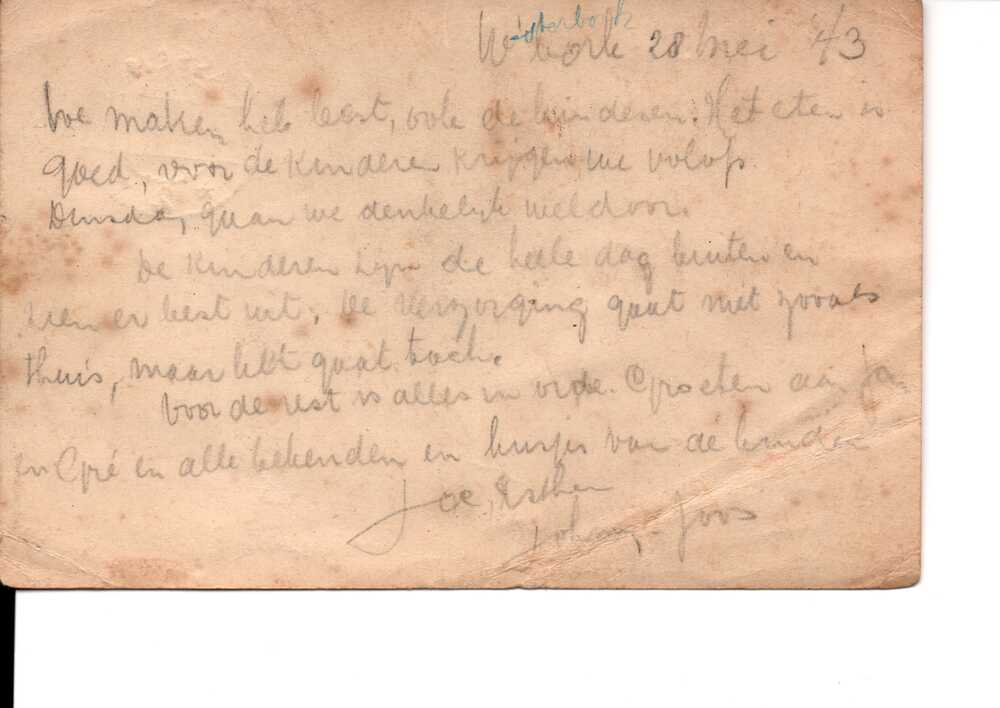 esterbork
W'bork 28 Mei '43
We maken het best, ook de kinderen. Het eten is
goed, voor de kinderen krijgen we volop.
Dinsdag gaan we denkelijk weldoor.
De kinderen zijn de heele dag buiten en
zien er best uit, de verzorging gaat niet zooals
thuis, maar het gaat toch.
Voor de rest is alles in orde. Groeten aan Ja
en Gré en alle bekenden en kusjes van de kinder
Joe, Esther
Johnny Joos